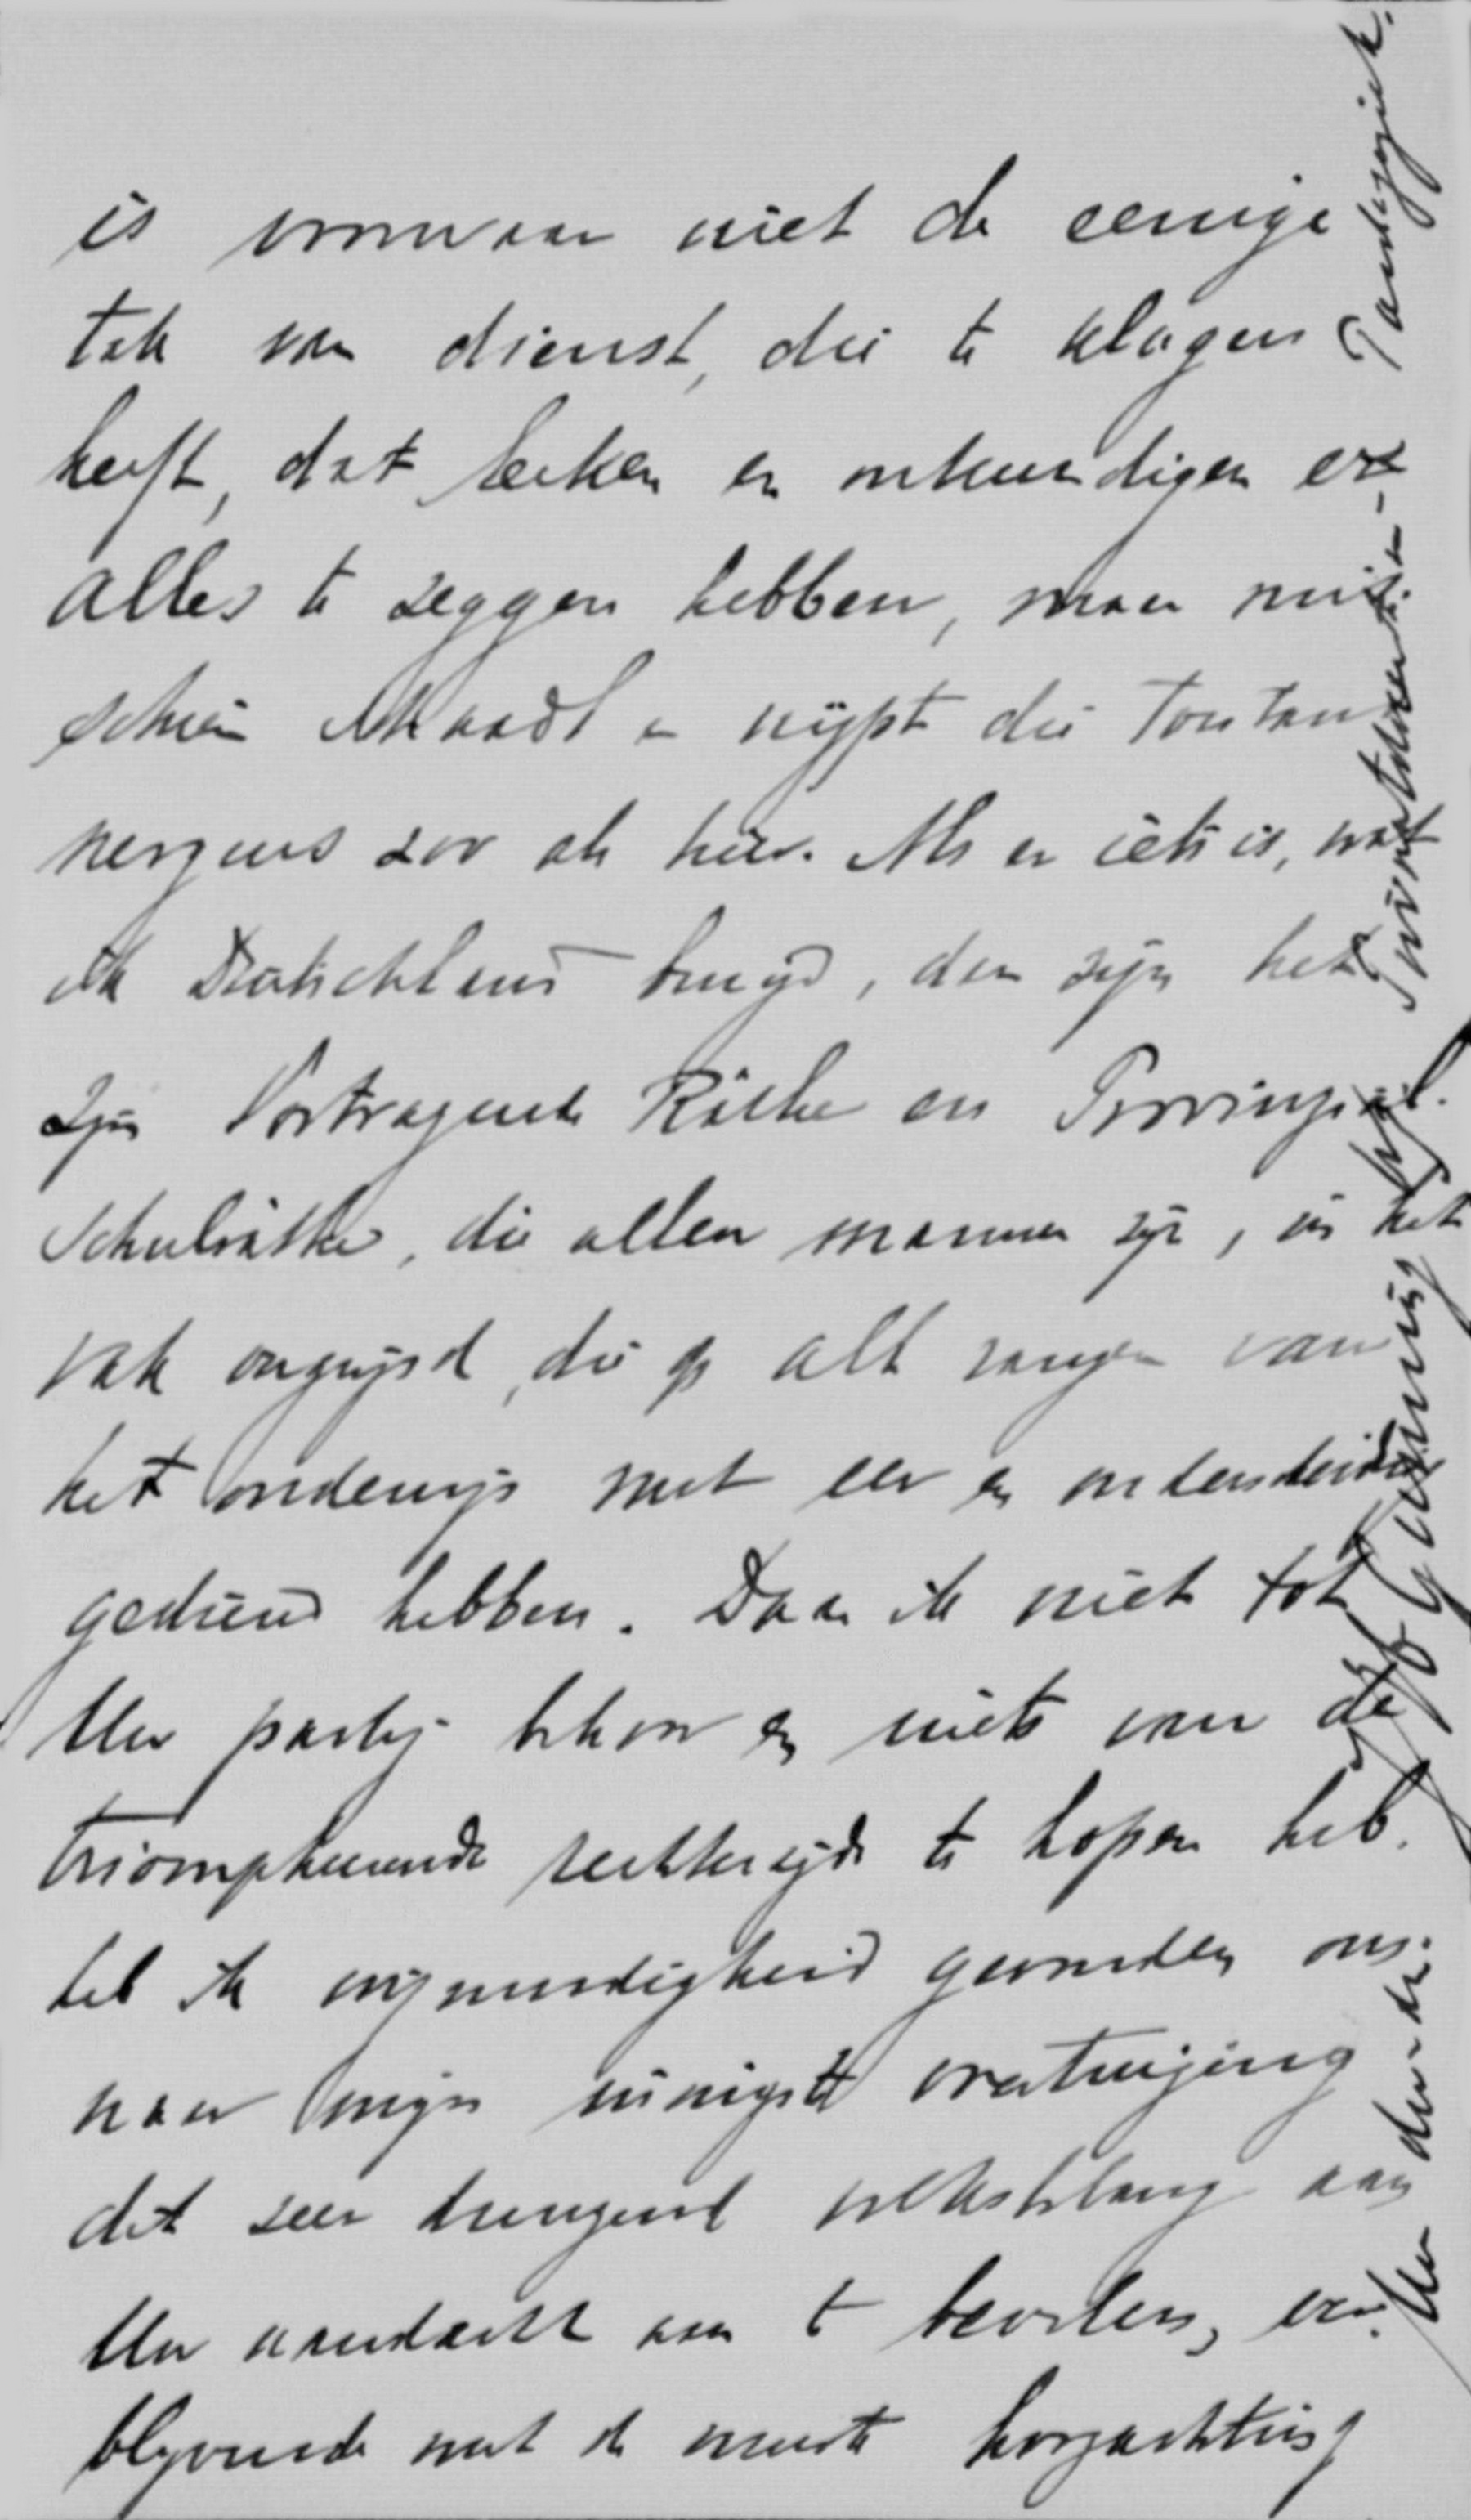 is voorwaar niet de eenige
tak van dienst, die te klagen
heeft, dat leeken en onkundigen er
alles te zeggen hebben, maar mis-
schien schaadt en nijpt die toestand
nergens zoo als hier. Als er iets is, wat
ik Duitschland benijd, dan zijn het
zijn Vortragende Räthe en Provinzial-
Schulräthe, die allen mannen zijn, in het
vak vergrijsd, die op alle rangen van
het onderwijs met eer en onderscheiding
gediend hebben. Daar ik niet tot
Uw partij behoor en niets van de
triompheerende rechterzijde te hopen heb,
heb ik vrijmoedigheid gevonden om
naar mijn innigste overtuiging
dit zeer dringend volksbelang aan
Uw aandacht aan te bevelen, ver-
blijvende met de meeste hoogachting
Uw dw. dr.
Gunning
Privatdocent in de Paedagogiek.